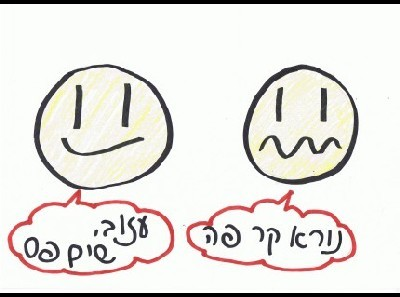 נורא קר פה
עזוב,
שים פס